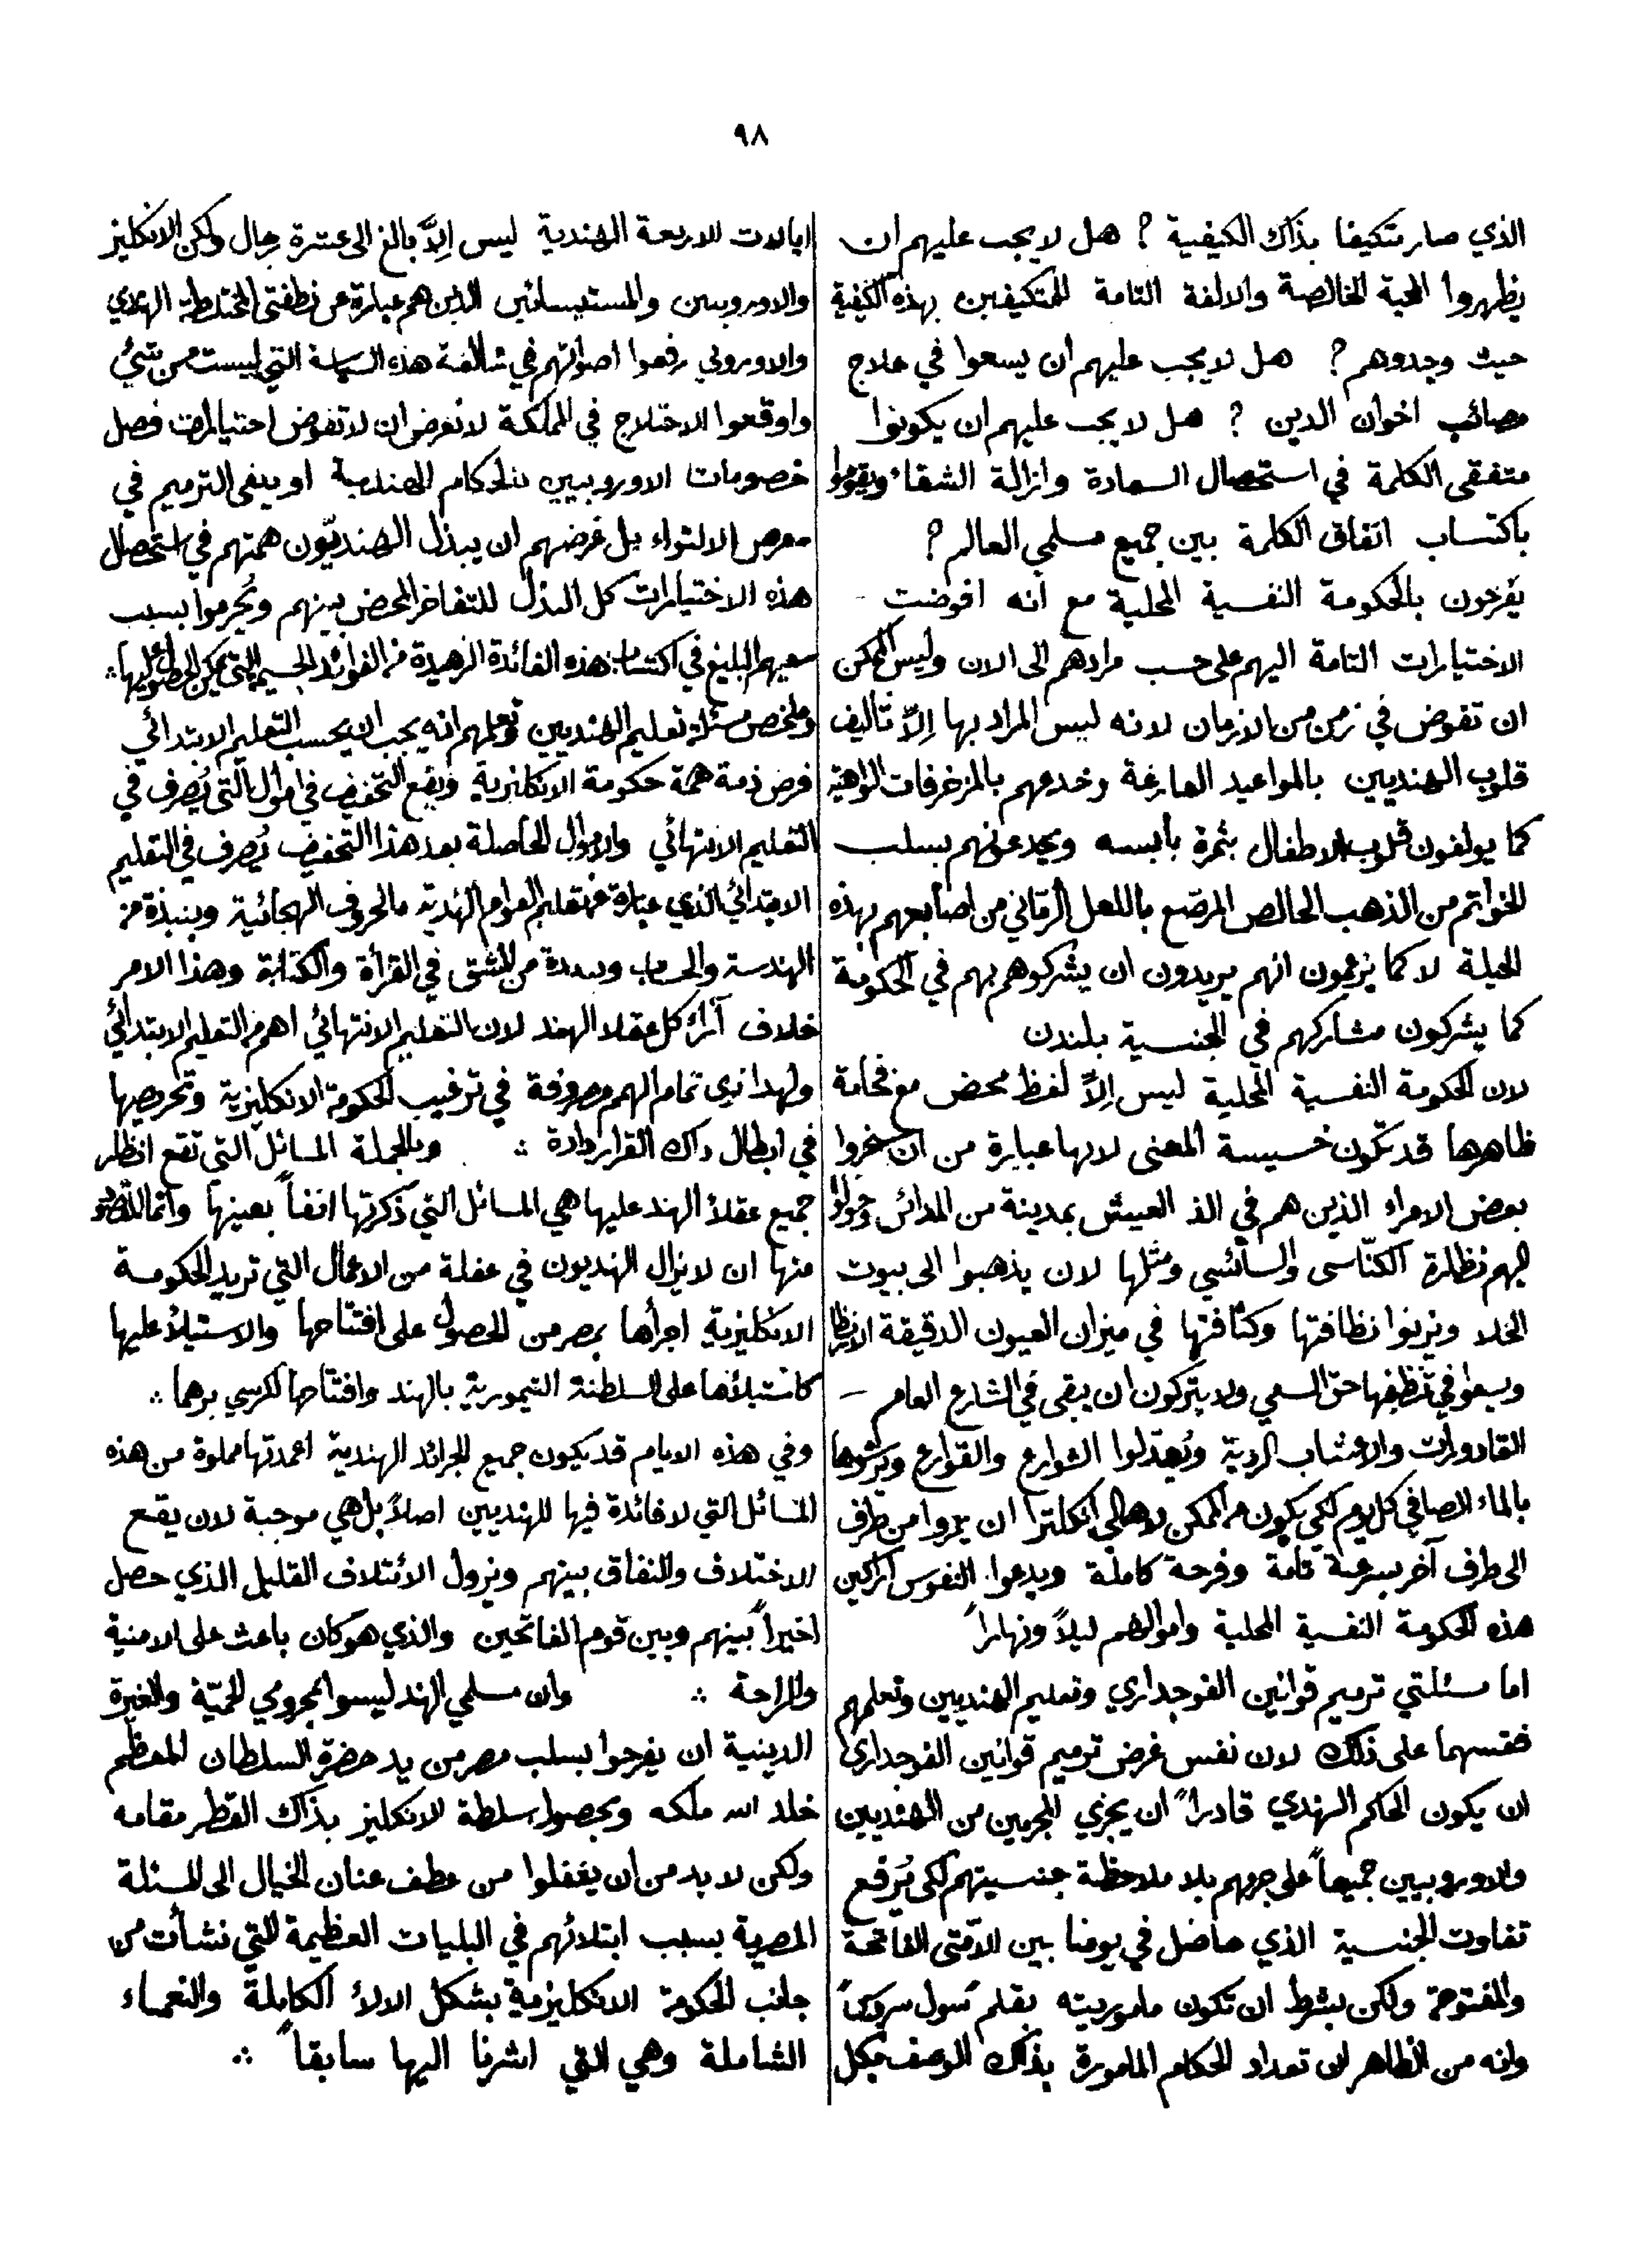 ٩٨
الذي صار متكيفا بذاك الكيفية ? هل لا يجب عليهم ان
يظهروا المحبة الخالصة والالفة التامة للمتكيفين بهذه الكيفية
حيث وجدوهم ? هل لا يجب عليهم ان يسعوا في علاج
مصائب اخوان الدين ? هل لا يجب عليهم ان يكونوا
متفقى الكلمة في استحصال السعادة وازالة الشقاء ويقوموا
باكتساب اتفاق الكلمة بين جميع مسلمي العالم ?
يفرخون بالحكومة النفسية المحلية مع انه افوضت -
الاختيارات التامة اليهم على حسب مرادهم الى الان وليس الممكن
ان تفوض في زمن من الازمان لانه ليس المراد بها اِلاّ تأليف
قلوب الهنديين بالمواعيد الفارغة وخدعهم بالمزخرفات الواهية
كما يولفون قلوب الاطفال بثمرة يابسه ويخدعونهم بسلب
الخواتم من الذهب الخالص المرصّع باللعل الرمّاني من اصابعهم بهذه
الحيلة لا كما يزعمون انهم يريدون ان يشركوهم بهم في الحكومة
كما يشركون مشاركهم في الجنسية بلندن
لان الحكومة النفسية المحلية ليس اِلاّ لفظ محض مع فخامة
ظاهرها قد تكون خسيسة المعنى لانها عبارة من ان
بعض الامراء الذين هم في الذ العيش بمدينة من المدائن
اليهم نظارة الكنّاسى والسائسي ومثلها لان يذهبوا الى بيوت
الخلا ويزنوا نظافتها وكثافتها في ميزان العيون الدقيقة الانظار
ويسعوا في تنظيفها حق السعي ولا يتركون ان يبقى في الشارع العام -
القاذورات والاعشاب الردية ويُعدّلوا الشوارع والقوارع ويرشوها
بالماء الصافي كل يوم لكي يكون من الممكن لاهالي انكلترا ان يمروا من طرف
الى طرف آخر بسرعة تامة وفرحة كاملة ويدعوا النفوس
هذه الحكومة النفسية المحلية واموالهم ليلاً ونهاراً
اما مسئلتي ترميم قوانين الفوجداري وتعليم الهنديين وتعلمهم
فقسهما على ذلك لان نفس غرض ترميم قوانين الفوجداري
ان يكون الحاكم الهندي قادراً ان يجزي المجرمين من الهنديين
والاوروبيين جميعاً على جرمهم بلا ملاحظة جنسيتهم لكى يُرفع
تفاوت الجنسية الذي حاصل في يومنا بين الامّتى الفاتحة
والمفتوحة ولكن بشرط ان تكون ماموريته بقلم سول
وانه من الظاهر ان تعداد الحكام المامورة بذاك الوصف بكل
ايالات الاربعة الهندية ليس اِلاّ بالغ الى عشرة رجال ولكن الانكليز
والاوروبيين والمستيسائين الذين هم عبارة عن نطفتى المختلطة الهندي
والاوروبي رفعوا اصواتهم في مخالفة هذه السياسة التي ليست من شئ
واوقعوا الاختلاج في المملكة لا لغرض ان لا تفوض اختيارات فصل
خصومات الاوروبيين للحكام الهندية او يبقى الترميم في
معرض الالتواء بل غرضهم ان يبذل الهنديّون همتهم في استحصال
هذه الاختيارات كل البذل للتفاخر المحض بينهم ويُحرموا بسبب
سعيهم البليغ في اكتساب هذه الفائدة الزهيدة من الفوائد الجسيمة التي يمكن الحصول عليها ∴
وملخص مسئلة تعليم الهنديين وتعلمهم انه يجب ان يحسب التعليم الابتدائي
فرض ذمة همة حكومة الانكلنزية ويقع التخفيض في اموال التي يُصرف في
التعليم الانتهائي والاموال الحاصلة بعد هذا التخفيض يُصرف في التعليم
الابتدائي الذي عبارة من تعليم العوام الهندية بالحروف الهجائية وبنبذة من
الهندسة والحساب وبمدة من المشق في القرأة والكتابة وهذا الامر
خلاف آراء كل عقلاء الهند لان التعليم الانتهائي اهم من التعليم الابتدائي
ولهذا نرى تمام الهمم مصروفة في ترغيب الحكومة الانكليزية وتحريصها
في ابطال ذاك القرارداده ∴ وبالجملة المسائل التي تقع انظار
جميع عقلاء الهند عليها هي المسائل التي ذكرتها انفاً بعينها وانما المقصود
منها ان لا يزال الهنديون في غفلة من الاعمال التي تريد الحكومة
الانكليزية اجرأها بمصر من الحصول على افتتاحها والاستيلأ عليها
كاستيلأها على السلطنة التيمورية بالهند وافتتاحها لكرسي برهما ∴
وفي هذه الايام قد يكون جميع الجرائد الهندية اعمدتها مملوة من هذه
المسائل التي لا فائدة فيها للهنديين اصلاً بل هي موجبة لان يقع
الاختلاف والنفاق بينهم ويزول الائتلاف القليل الذي حصل
اخيراً بينهم وبين قوم الفاتحين والذي هو كان باعث على الامنية
والراحة ∴ وان مسلمي الهند ليسوا بمحرومي الحميّة والغيرة
الدينية ان يفرحوا بسلب مصر من يد حضرة السلطان المعظم
خلد الله ملكه وبحصول سلطة الانكليز بذاك القطر مقامه
ولكن لا بد من ان يغفلوا من عطف عنان الخيال الى المسئلة
المصرية بسبب ابتلائهم في البليات العظيمة التي نشأت من
جانب الحكومة الانكليزية بشكل الالأ الكاملة والنعماء
الشاملة وهي التي اشرنا اليها سابقاً ∴